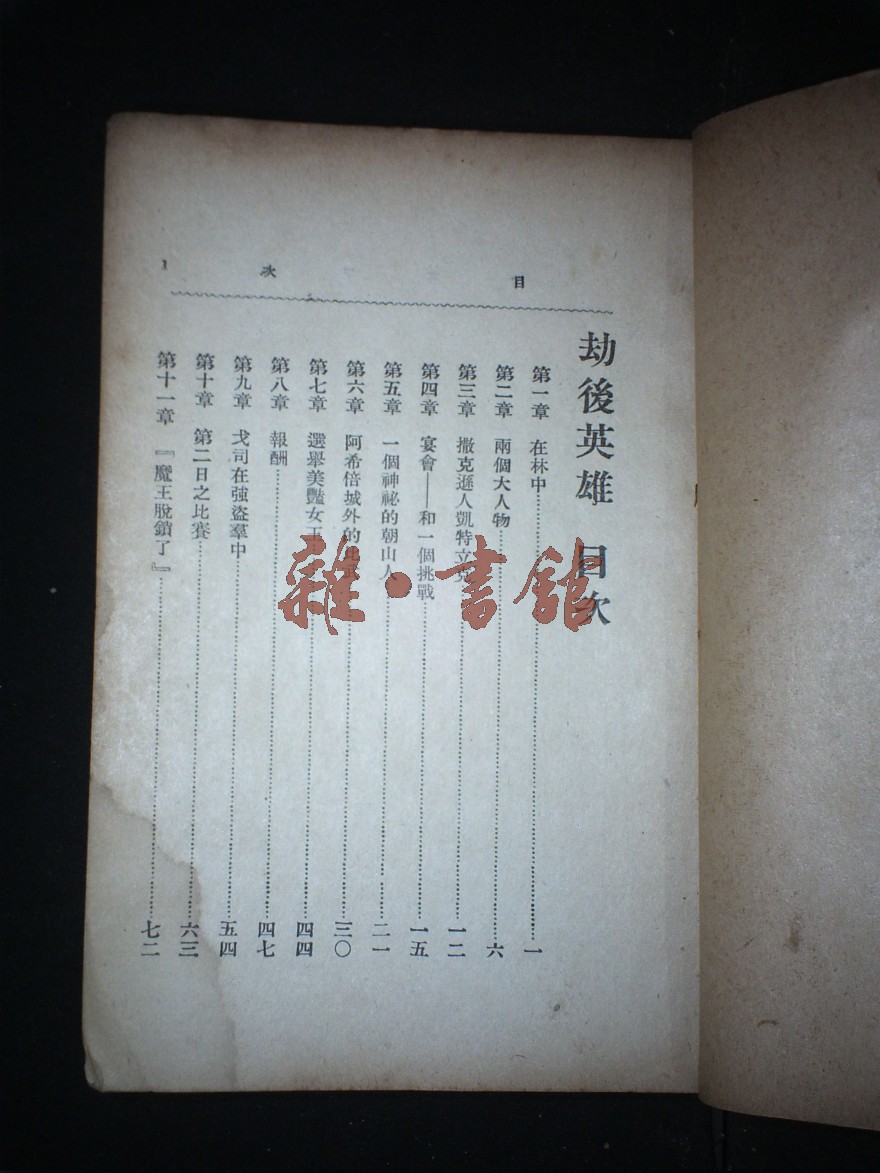 目次 1
劫後英雄 目次
第一章 在林中……一
第二章 兩個大人物……六
第三章 撒克遜人凱特立克……一二
第四章 宴會——和一個挑戰……一五
第五章 一個神祕的朝山人……二一
第六章 阿希倍城外的比武……三〇
第七章 選舉美豔女王……四四
第八章 報酬……四七
第九章 戈司在強盜羣中……五四
第十章 第二日之比賽……六三
第十一章 『魔王脫鎖了』……七二
雜·書館